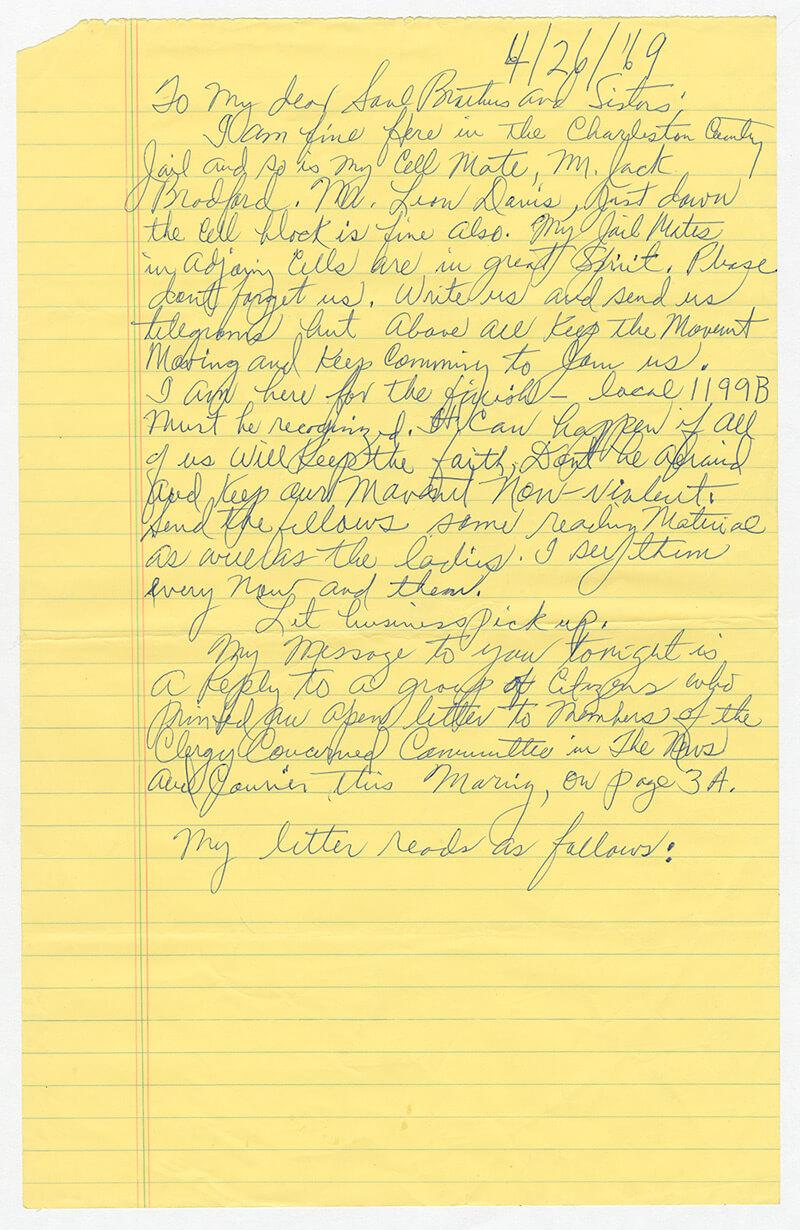 4/26/69
To My dear Soul Brothers and Sisters:
I am fine here in the Charleston County
Jail and so is my Cell Mate, Mr. Jack
Bradford. Mr. Leon Davis, just down
the Cell block is fine also. My Jail Mates
in Adjoing Cells are in great Spirit. Please
dont forget us. Write us and send us
telegrams but Above all Keep the Movemt
Moving and Keep Comming to Join us.
I Am here for the finish – local 1199B
Must be recognized. It Can happen if All
of us Will Keep the faith. Dont be Afraid
And Keep our Movemt Non-violent.
Send the fellows some reading Material
As well as the ladies. I see them
every Now and them.
Let business pick up.
My Message to you tonight is
a Reply to a group of Citizens who
printed an open letter to Members of the
Clergy Concerned Committee in The News
And Courier this Morning, on page 3A.
My letter reads as follows: